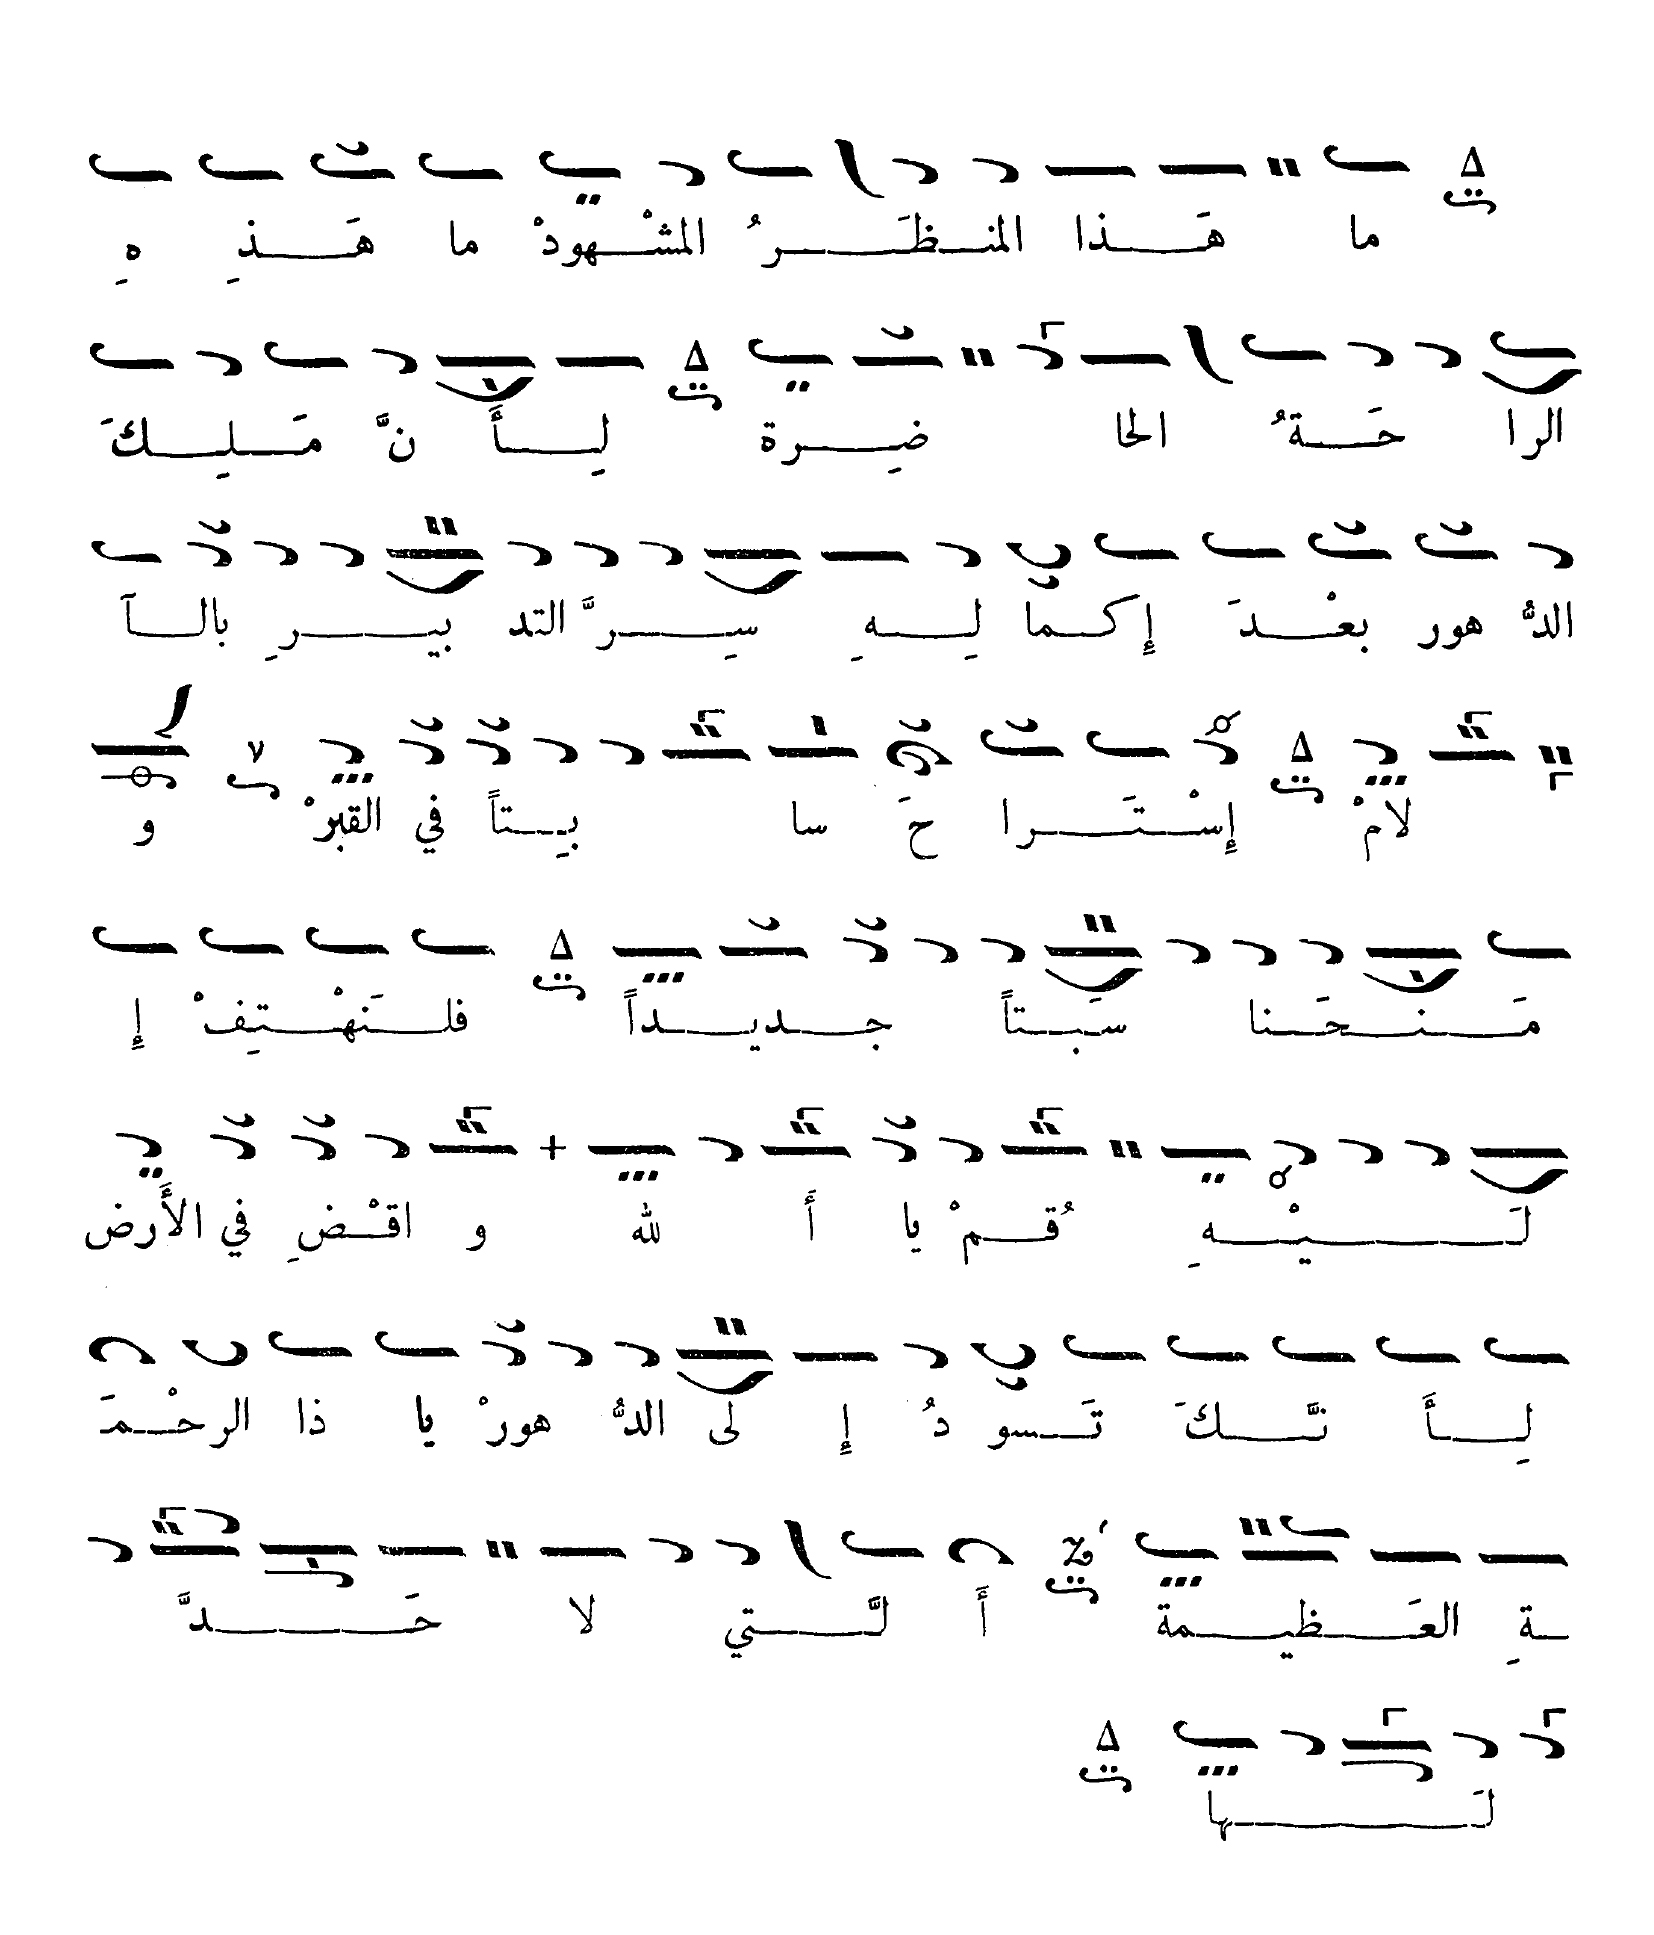 ما هَـذا المنـظَـرُ المشْـهودْ ما هَـذِ هِ
الرا حَـةُ الحا ضِـرة لِـأَ نَّ مَـلِـكَ
الدُّ هور بعْـدَ إكـما لِـهِ سِـرَّ التد بيـرِ بالـآ
لامْ إسْـتَـرا حَ سا بِـتاً في القبرْ و
مَـنـحَـنا سَـبـتاً جـديـداً فلـنَهْـتِـفْ إ
لَـيْـهِ قُـمْ يا أ لله و اقـْضِ في الأَرض
لِـأَ نـَّـكَ تَـسود دُ إ لى الدُّ هورْ يا ذا الرحْـمَـ
ـةِ العَـظيـمة أَ لَّـتي لا حَـدَّ
لَـها